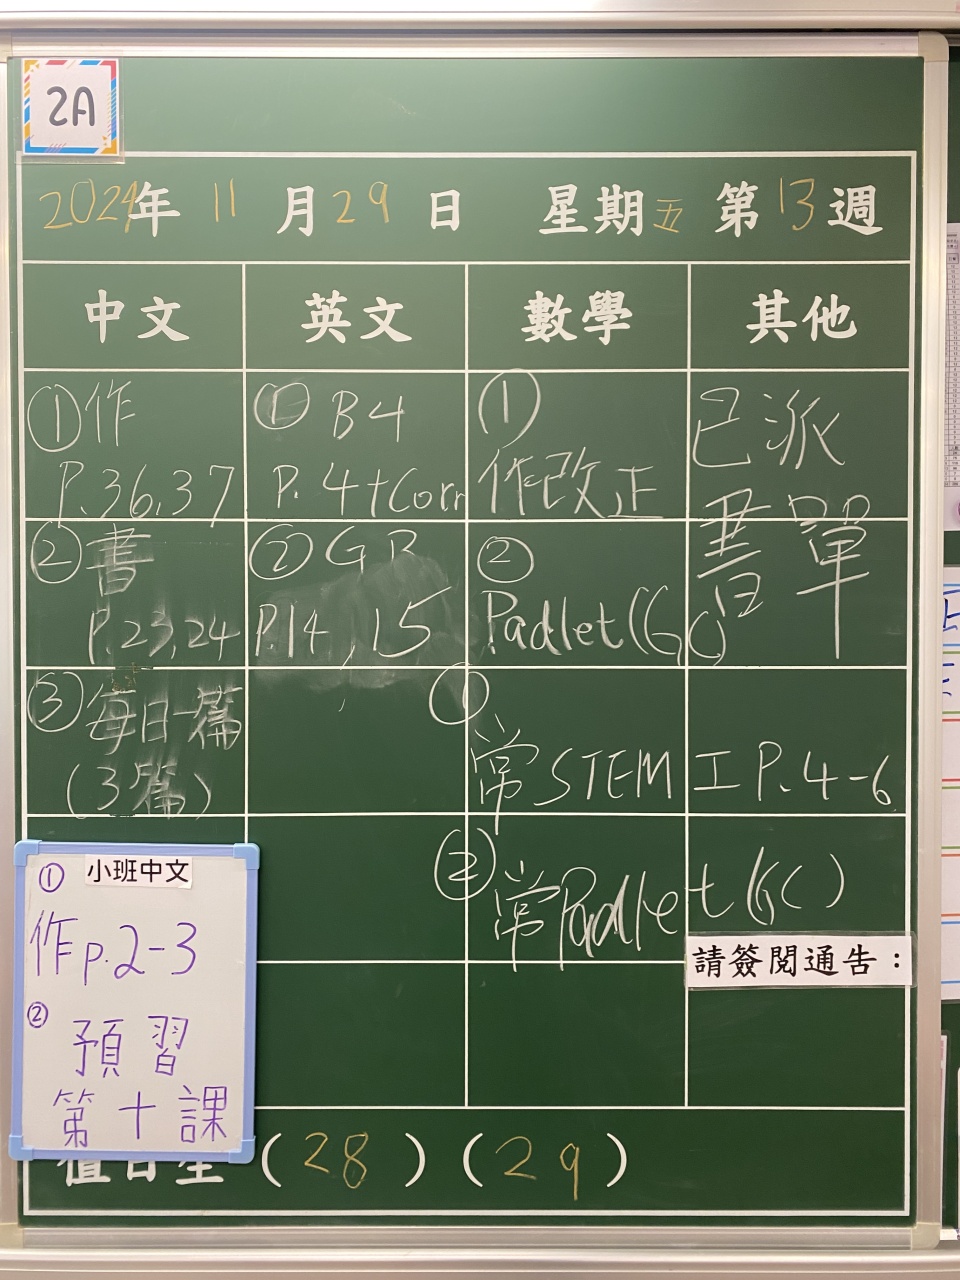 2A
2024年 11 月 29 日 星期五 第 13 週
中文 英文 數學 其他
① 作
P.36,37
② 書
P.23,24
③ 每日一篇
(3篇)
① B4
P. 4+Corr
② GR
P.14, 15
①
作改正
②
Padlet(GC)
已派
書單
①
常STEM工P.4-6
②
常Padlet(GC)
請簽閱通告：
小班中文
①
作p.2-3
②
預習
第十課
值日生 (28) (29)